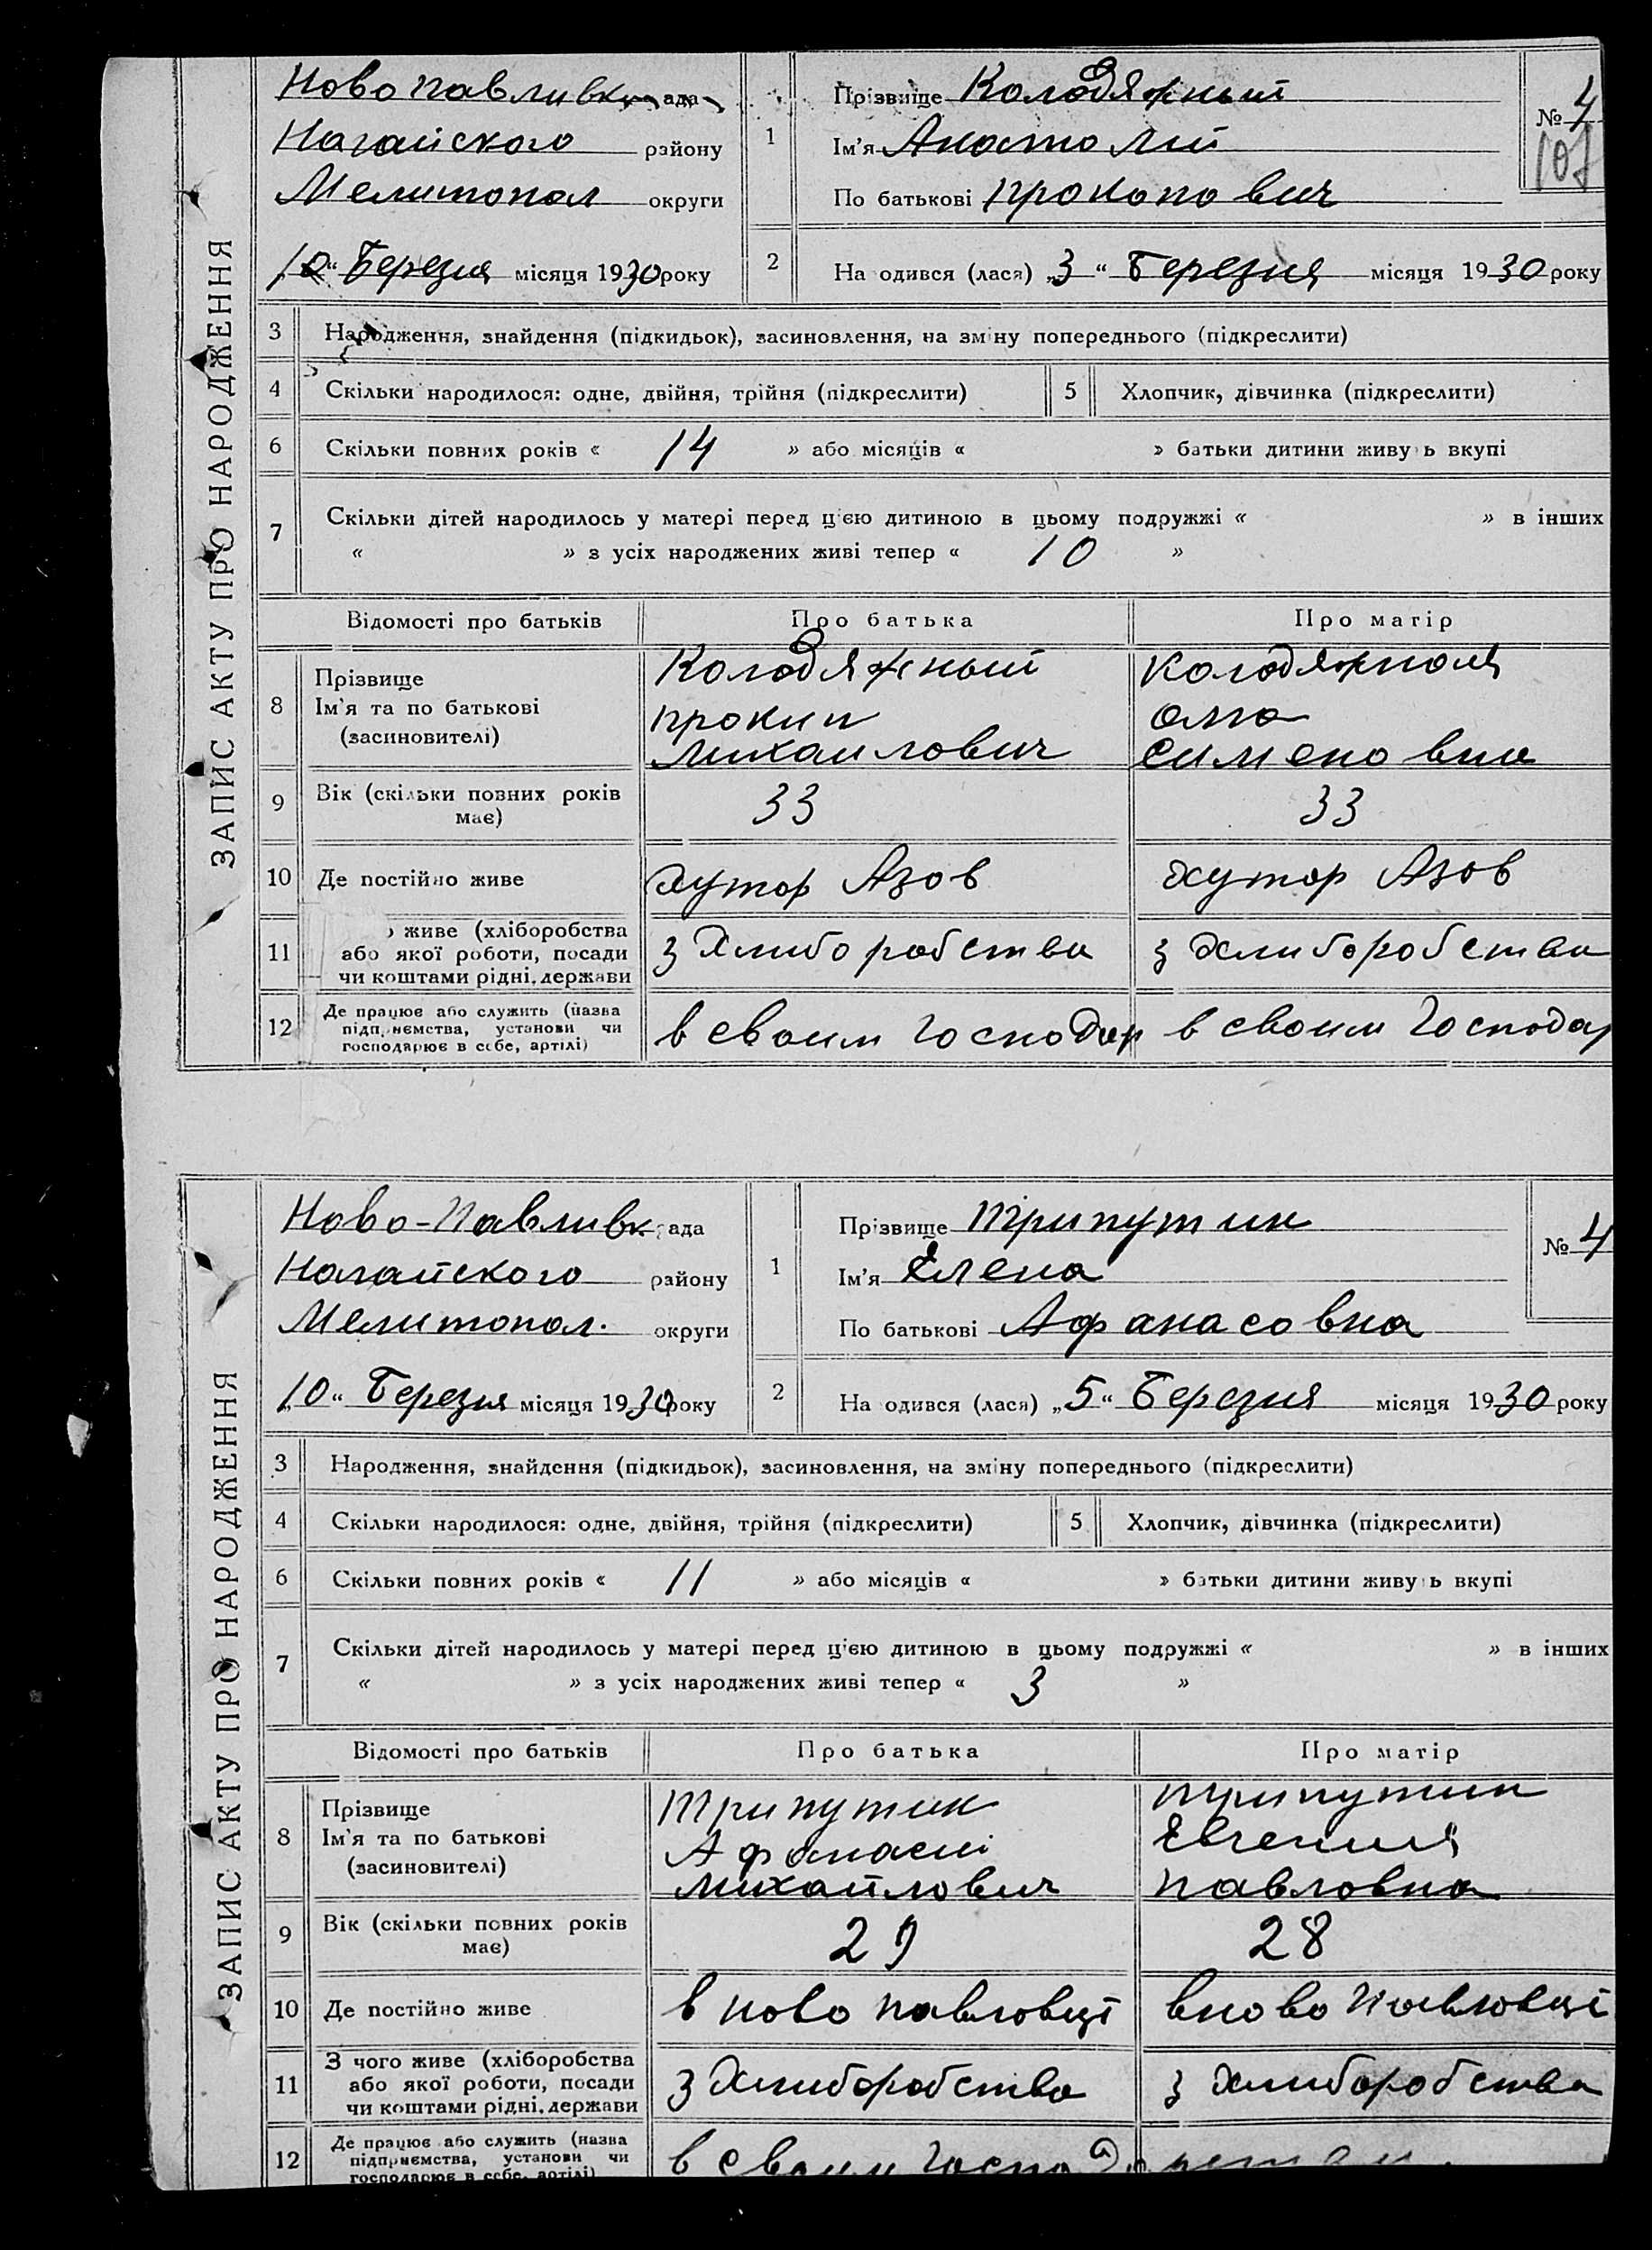 ЗАПИС АКТУ ПРО НАРОДЖЕННЯ
Ново павливк ада
Нагайского району
Мелитопол округи
"10" Березня місяця 1930 року
1
Прізвище Колодяжный
Ім'я Анатолий
По батькові прокопович
№ 4
107
2
На одився (лася) „3" Березня місяця 1930 року
3 Народження, знайдення (підкидьок), засиновлення, на зміну попереднього (підкреслити)
4 Скільки народилося: одне, двійня, трійня (підкреслити) 5 Хлопчик, дівчинка (підкреслити)
6 Скільки повних років « 14 » або місяців « » батьки дитини живу ь вкупі
7 Скільки дітей народилось у матері перед цією дитиною в цьому подружжі « » в інших
« » з усіх народжених живі тепер « 10 »
Відомості про батьків Про батька Про матір
8
Прізвище
Ім'я та по батькові
(засиновителі)
Колодяжный
прокип
михаилович
колодяжная
Сименовна
9 Вік (скільки повних років має) 33 33
10 Де постійно живе хутор Азов хутор Азов
11
живе (хліборобства
або якої роботи, посади
чи коштами рідні, держави
з Хлиборобства з хлиборобства
12
Де працює або служить (назва
підприємства, установи чи
господарює в себе, артілі)
в своим Господар в своим Господар
ЗАПИС АКТУ ПРО НАРОДЖЕННЯ
Ново-Павливк ада
Нагайского району
Мелитопол. округи
„10" Березня місяця 1930 року
1
Прізвище Трипутин
Ім'я Елена
По батькові Афанасовна
№ 4
2
На одився (лася) „5" Березня місяця 1930 року
3 Народження, знайдення (підкидьок), засиновлення, на зміну попереднього (підкреслити)
4 Скільки народилося: одне, двійня, трійня (підкреслити) 5 Хлопчик, дівчинка (підкреслити)
6 Скільки повних років « 11 » або місяців « » батьки дитини живу ь вкупі
7 Скільки дітей народилось у матері перед цією дитиною в цьому подружжі « » в інших
« » з усіх народжених живі тепер « 3 »
Відомості про батьків Про батька Про матір
8
Прізвище
Ім'я та по батькові
(засиновителі)
Трипутин
Афанасий
михайлович
трипутин
Евгения
павловна
9 Вік (скільки повних років має) 29 28
10 Де постійно живе в ново павловці в ново павловці
11
З чого живе (хліборобства
або якої роботи, посади
чи коштами рідні, держави
з Хлиборобства з хлиборобства
12
Де працює або служить (назва
підприємства, установи чи
господарює в себе, артілі)
в своим